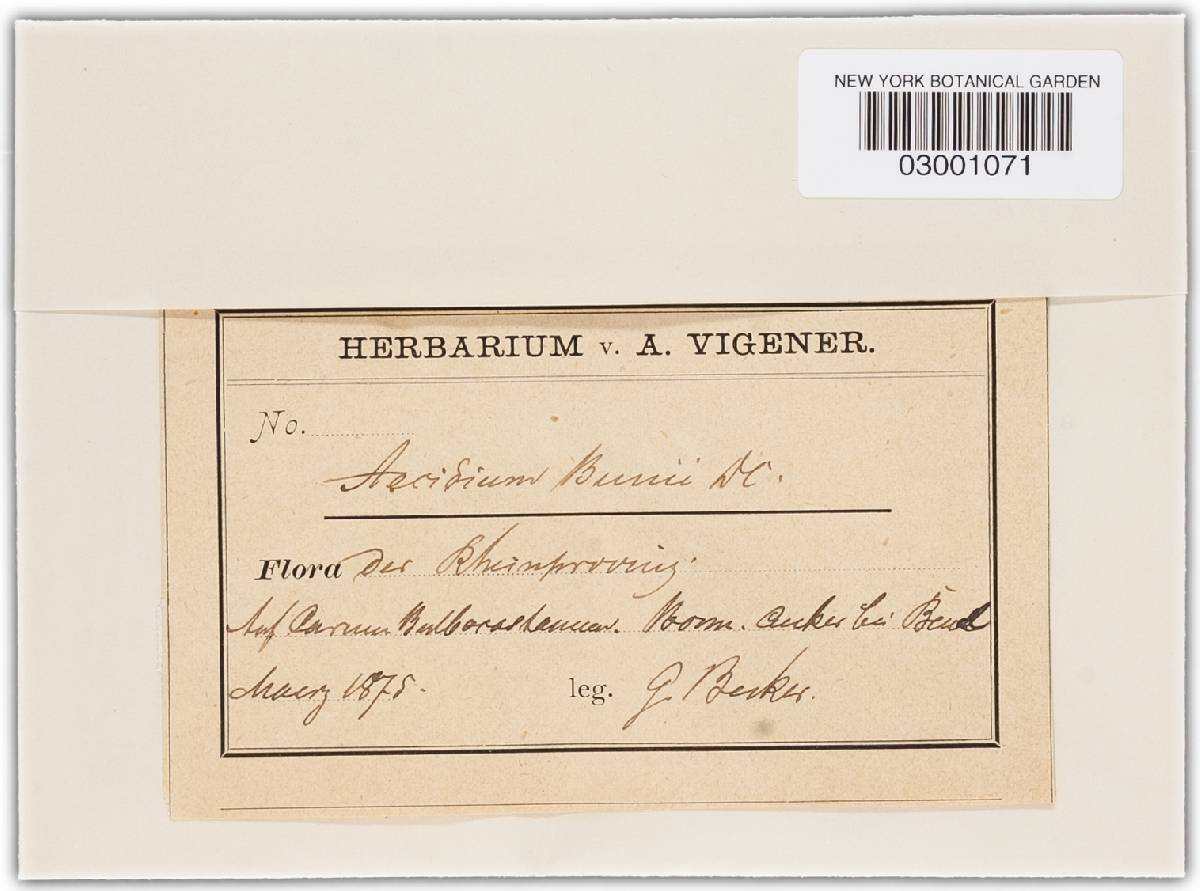 NEW YORK BOTANICAL GARDEN
03001071
HERBARIUM v. A. VIGENER.
No.
Aecidium Bunii DC.
Flora der Rheinprovinz.
Auf Carum Bulbocastanum. Bonn. Aecker bei
Maerz 1875. leg. G. Becker.